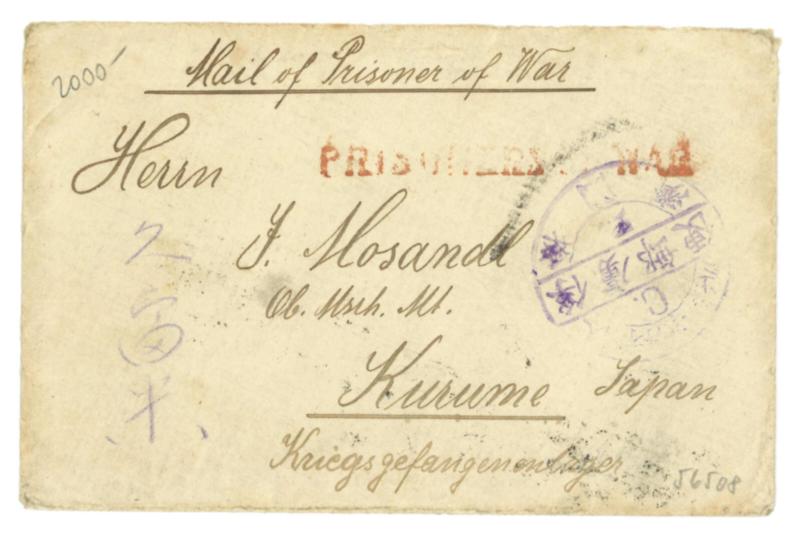 2000
Mail of Prisoner of War
PRISONERS WAR
Herrn
J. Mosandl
Ob. Msch. Mt.
Kurume Japan
Kriegsgefangenenlager
久留米
56508